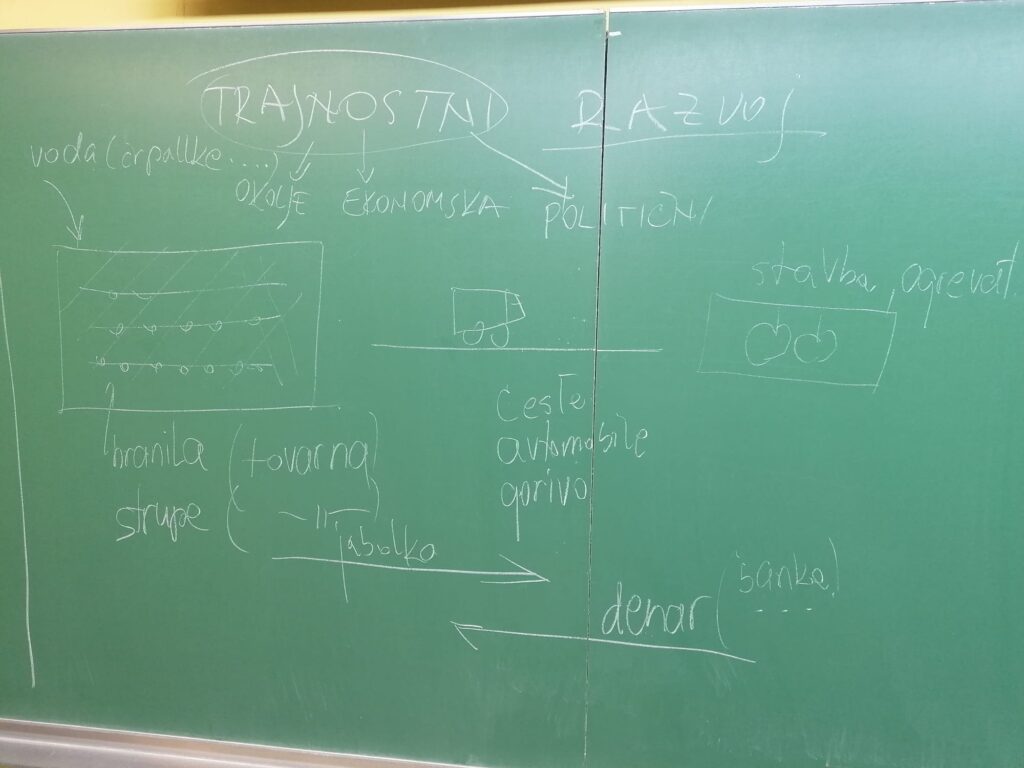 TRAJNOSTNI RAZVOJ
voda (črpalke.....)
OKOLJE EKONOMSKA POLITIČNI
stavba, ogrevat
ceste
avtomobile
gorivo
hranila (tovarna)
strupe ( -11- )
jabolka
denar (banke)